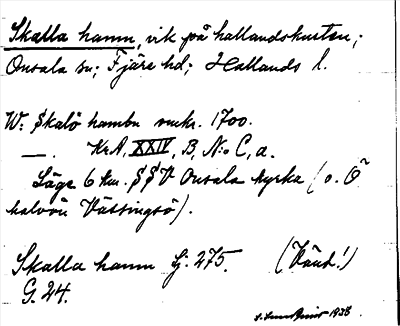 Skalla hamn, vik på hallandskusten;
Onsala sn; Fjäre hd; Hallands l.
W: Skalö hambn omkr. 1700.
—. KrA, XXIV, B, N:o C, a.
Läge 6 km. SSV Onsala kyrka (o. Ö
halvön Vässingsö).
Skalla hamn Sj. 275. (Vänd!)
G. 24.
1938